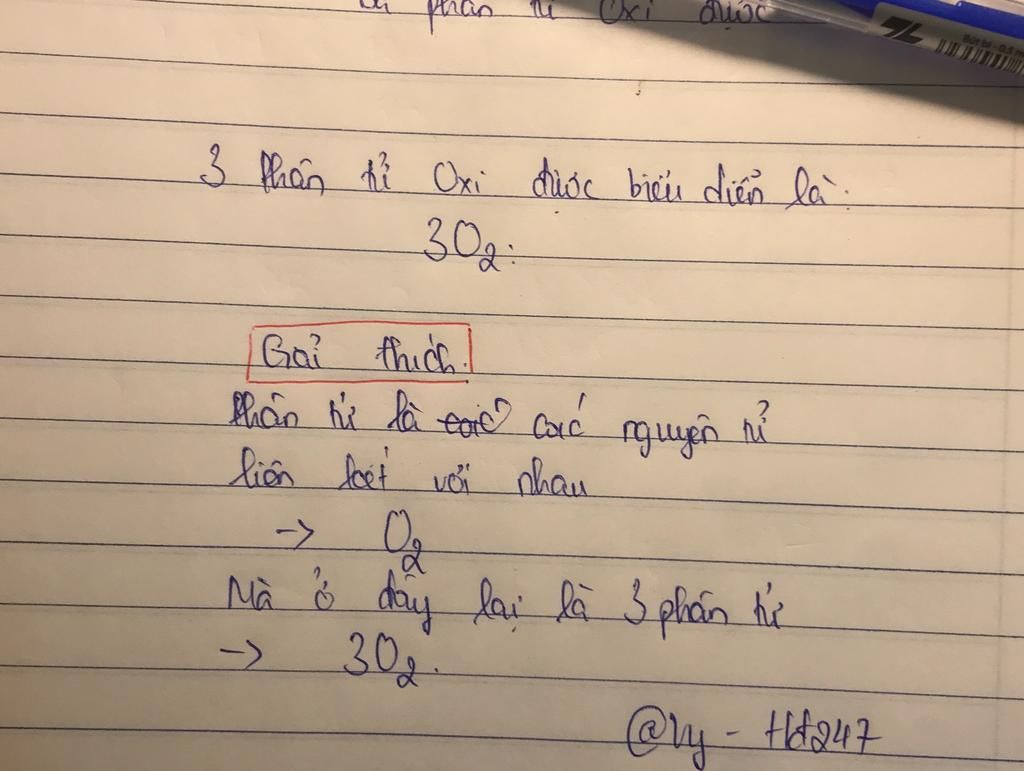 phân tử Oxi được
Bút bi - 0.5 m
3 Phân tử Oxi được biểu diễn là:
3O₂:
Giải thích.
Phân tử là các nguyên tử
liên kết với nhau
-> O₂
Mà ở đây lại là 3 phân tử
-> 3O₂.
@Vy - Hd247